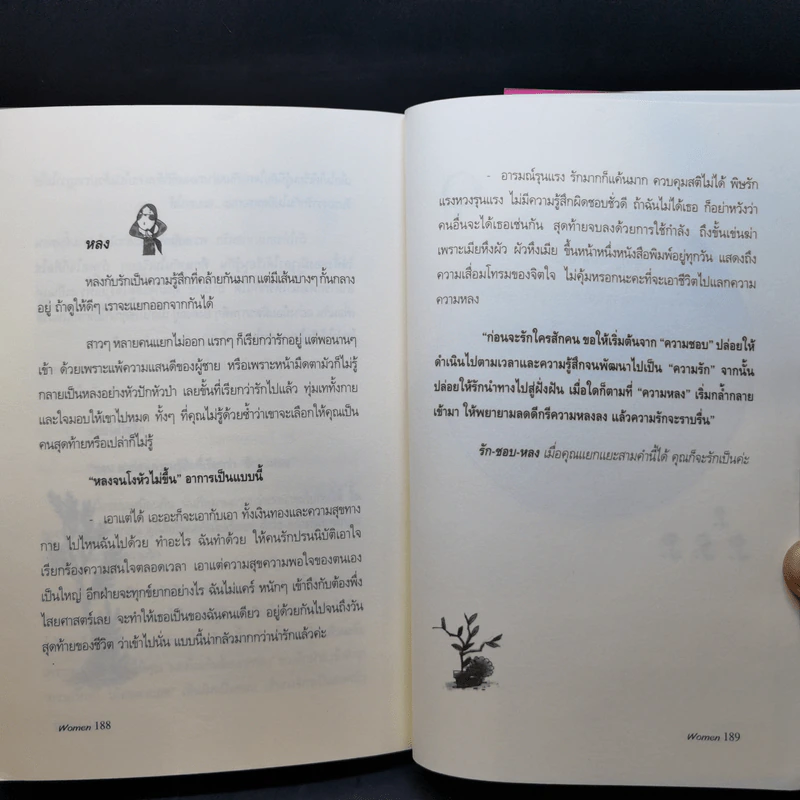 หลง
หลงกับรักเป็นความรู้สึกที่คล้ายกันมาก แต่มีเส้นบางๆ กั้นกลาง
อยู่ ถ้าดูให้ดีๆ เราจะแยกออกจากกันได้
สาวๆ หลายคนแยกไม่ออก แรกๆ ก็เรียกว่ารักอยู่ แต่พอนานๆ
เข้า ด้วยเพราะแพ้ความแสนดีของผู้ชาย หรือเพราะหน้ามืดตามัวก็ไม่รู้
กลายเป็นหลงอย่างหัวปักหัวปำ เลยขั้นที่เรียกว่ารักไปแล้ว ทุ่มเททั้งกาย
และใจมอบให้เขาไปหมด ทั้งๆ ที่คุณไม่รู้ด้วยซ้ำว่าเขาจะเลือกให้คุณเป็น
คนสุดท้ายหรือเปล่าก็ไม่รู้
“หลงจนโงหัวไม่ขึ้น” อาการเป็นแบบนี้
- เอาแต่ได้ เอะอะก็จะเอากับเอา ทั้งเงินทองและความสุขทาง
กาย ไปไหนฉันไปด้วย ทำอะไร ฉันทำด้วย ให้คนรักปรนนิบัติเอาใจ
เรียกร้องความสนใจตลอดเวลา เอาแต่ความสุขความพอใจของตนเอง
เป็นใหญ่ อีกฝ่ายจะทุกข์ยากอย่างไร ฉันไม่แคร์ หนักๆ เข้าถึงกับต้องพึ่ง
ไสยศาสตร์เลย จะทำให้เธอเป็นของฉันคนเดียว อยู่ด้วยกันไปจนถึงวัน
สุดท้ายของชีวิต ว่าเข้าไปนั่น แบบนี้น่ากลัวมากกว่าน่ารักแล้วค่ะ
Women 188
- อารมณ์รุนแรง รักมากก็แค้นมาก ควบคุมสติไม่ได้ พิษรัก
แรงหวงรุนแรง ไม่มีความรู้สึกผิดชอบชั่วดี ถ้าฉันไม่ได้เธอ ก็อย่าหวังว่า
คนอื่นจะได้เธอเช่นกัน สุดท้ายจบลงด้วยการใช้กำลัง ถึงขั้นเข่นฆ่า
เพราะเมียหึงผัว ผัวหึงเมีย ขึ้นหน้าหนึ่งหนังสือพิมพ์อยู่ทุกวัน แสดงถึง
ความเสื่อมโทรมของจิตใจ ไม่คุ้มหรอกนะคะที่จะเอาชีวิตไปแลกความ
ความหลง
“ก่อนจะรักใครสักคน ขอให้เริ่มต้นจาก “ความชอบ” ปล่อยให้
ดำเนินไปตามเวลาและความรู้สึกจนพัฒนาไปเป็น “ความรัก” จากนั้น
ปล่อยให้รักนำทางไปสู่ฝั่งฝัน เมื่อใดก็ตามที่ “ความหลง” เริ่มกล้ำกลาย
เข้ามา ให้พยายามลดดีกรีความหลงลง แล้วความรักจะราบรื่น”
รัก-ชอบ-หลง เมื่อคุณแยกแยะสามคำนี้ได้ คุณก็จะรักเป็นค่ะ
Women 189